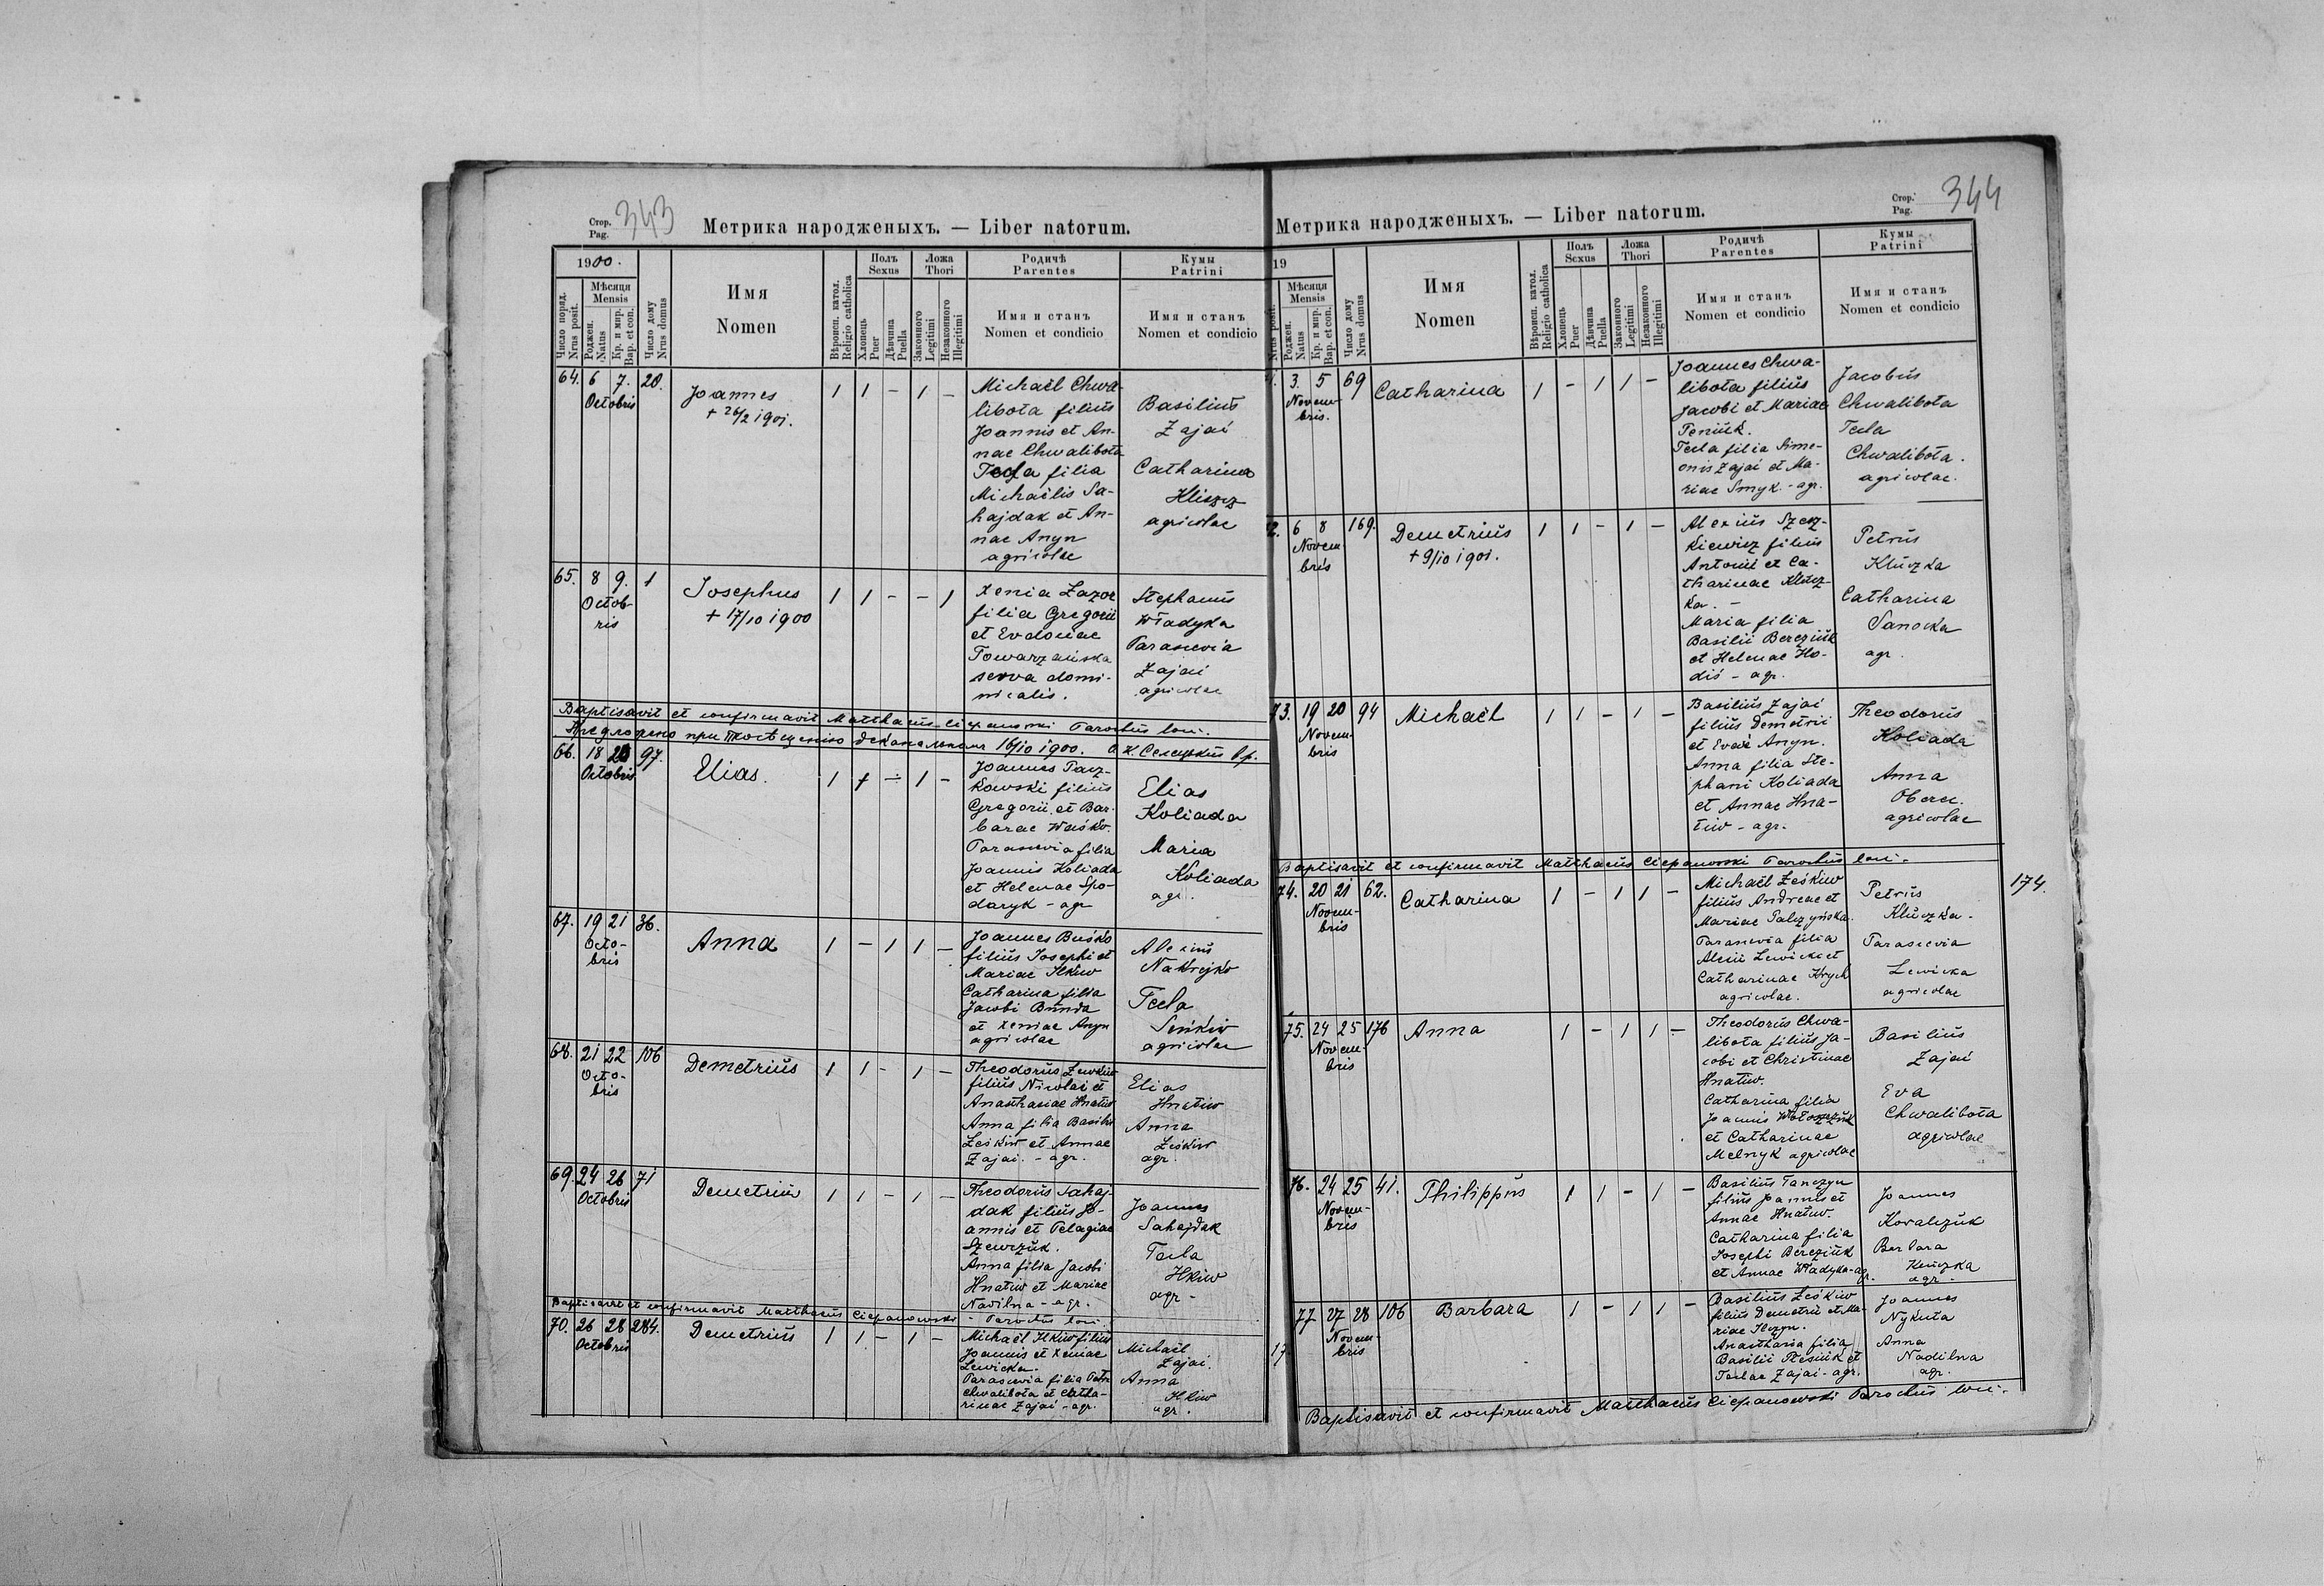 Стор.
Pag. 343
Метрика народженыхъ. — Liber natorum.
1900.
Число поряд.
Nrus posit.
Мѣсяця
Mensis
Роджен.
Natus
Кр. и мир.
Bap. et con.
Число дому
Nrus domus
Имя
Nomen
Вѣроисп. катол.
Religio catholica
Полъ
Sexus
Хлопець
Puer
Дѣвчина
Puella
Ложа
Thori
Законного
Legitimi
Незаконного
Illegitimi
Родичѣ
Parentes
Имя и станъ
Nomen et condicio
Кумы
Patrini
Имя и станъ
Nomen et condicio
64. 6 7. 20.
Octobris
Joannes
+ 26/2 1901.
1 1 - 1 -
Michaël Chwa-
libota filius
Joannis et An-
nae Chwalibota
Tecla filia
Michaëlis Sa-
hajdak et An-
nae Anyn
agricolae
Basilius
Zajai
Catharina
Kliszcz
agricolae
65. 8 9. 1
Octob-
ris
Josephus
+ 17/10 1900
1 1 - - 1
Xenia Lazor
filia Gregorii
et Evdociae
Towarzańska
serva domi-
nicalis.
Stephanus
Władyka
Parascevia
Zajai
agricolae
Baptisavit et confirmavit Matthaeus Ciepanowski Parochus loci.
Предложено при посѣщенію деканальномъ 16/10 1900.
66. 18 20 97.
Octobris
Elias.
1 1 - 1 -
Joannes Pacz-
kowski filius
Gregorii et Bar-
barae Waśko.
Parascevia filia
Joannis Koliada
et Helenae Spo-
daryk - agr
Elias
Koliada
Maria
Koliada
agr.
67. 19 21 36.
Octo-
bris
Anna
1 - 1 1 -
Joannes Buśko
filius Josephi et
Mariae Ilkiw
Catharina filia
Jacobi Bunda
et Xeniae Anyn
agricolae
Alexius
Nakrejko
Tecla
Seńkiw
agricolae
68. 21 22 106
Octo-
bris
Demetrius
1 1 - 1 -
Theodorus
filius Nicolai et
Anasthasiae Hnatiw
Anna filia Basilii
Leśkiw et Annae
Zajai. - agr.
Elias
Hnatiw
Anna
Leśkiw
agr.
69. 24 26 71
Octobris
Demetrius
1 1 - 1 -
Theodorus Sahaj-
dak filius Jo-
annis et Pelagiae
Szewczuk.
Anna filia Jacobi
Hnatiw et Mariae
Nadilna - agr.
Joannes
Sahajdak
Tecla
Ilkiw
agr -
Baptisavit et confirmavit Matthaeus Ciepanowski - Parochus loci.
70. 26 28 284.
Octobris
Demetrius
1 1 - 1 -
Michaël Ilkiw filius
Joannis et Xeniae
Lewicka.
Parascevia filia Petri
Chwalibota et Catha-
rinae Zajai - agr.
Michaël
Zajai.
Anna
Ilkiw
agr.
Стор.
Pag. 344
Метрика народженыхъ. — Liber natorum.
19
Nrus posit.
Мѣсяця
Mensis
Роджен.
Natus
Кр. и мир.
Bap. et con.
Число дому
Nrus domus
Имя
Nomen
Вѣроисп. катол.
Religio catholica
Полъ
Sexus
Хлопець
Puer
Дѣвчина
Puella
Ложа
Thori
Законного
Legitimi
Незаконного
Illegitimi
Родичѣ
Parentes
Имя и станъ
Nomen et condicio
Кумы
Patrini
Имя и станъ
Nomen et condicio
1. 3. 5 69
Novem-
bris.
Catharina
1 - 1 1 -
Joannes Chwa-
libota filius
Jacobi et Mariae
Peniuk.
Tecla filia Sime-
onis Zajai et Ma-
riae Smyk. - agr.
Jacobus
Chwalibota
Tecla
Chwalibota.
agricolae.
2. 6 8 169.
Novem
bris
Demetrius
+ 9/10 1901.
1 1 - 1 -
Alexius Szesz-
kiewicz filius
Antonii et Ca-
tharinae Klucz-
ka. -
Maria filia
Basilii Bereziuk
et Helenae Ho-
diś - agr.
Petrus
Kluczka
Catharina
Sanocka
agr.
73. 19 20 94
Novem-
bris
Michaël
1 1 - 1 -
Basilius Zajai
filius Demetrii
et Evae Anyn.
Anna filia Ste-
phani Koliada
et Annae Hna-
tiw - agr.
Theodorus
Koliada
Anna
Oberec.
agricolae
Baptisavit et confirmavit Matthaeus Ciepanowski Parochus loci.
74. 20 21 62.
Novem-
bris
Catharina
1 - 1 1 -
Michaël Leśkiw
filius Andreae et
Mariae Palczyńska.
Parascevia filia
Alexii Lewicki et
Catharinae Krych
agricolae.
Petrus
Kluczka.
Parascevia
Lewicka
agricolae
174.
75. 24 25 176
Novem-
bris
Anna
1 - 1 1 -
Theodorus Chwa-
libota filius Ja-
cobi et Christinae
Hnatiw.
Catharina filia
Joannis Wołoszczuk
et Catharinae
Melnyk agricolae
Basilius
Zajai
Eva
Chwalibota
agricolae
76. 24 25 41.
Novem-
bris
Philippus
1 1 - 1 -
Basilius Tanczyn
filius Joannis et
Annae Hnatiw.
Catharina filia
Josephi Bereziuk
et Annae Władyka - agr.
Joannes
Kovalczuk
Barbara
Kluczka
agr.
77 27 28 106
Novem-
bris
Barbara
1 - 1 1 -
Basilius Leśkiw
filius Demetrii et Ma-
riae Ilczyn.
Anasthasia filia
Basilii et
Teclae Zajai - agr.
Joannes
Nykuta
Anna
Nadilna
agr.
17.
Baptisavit et confirmavit Matthaeus Ciepanowski Parochus loci.